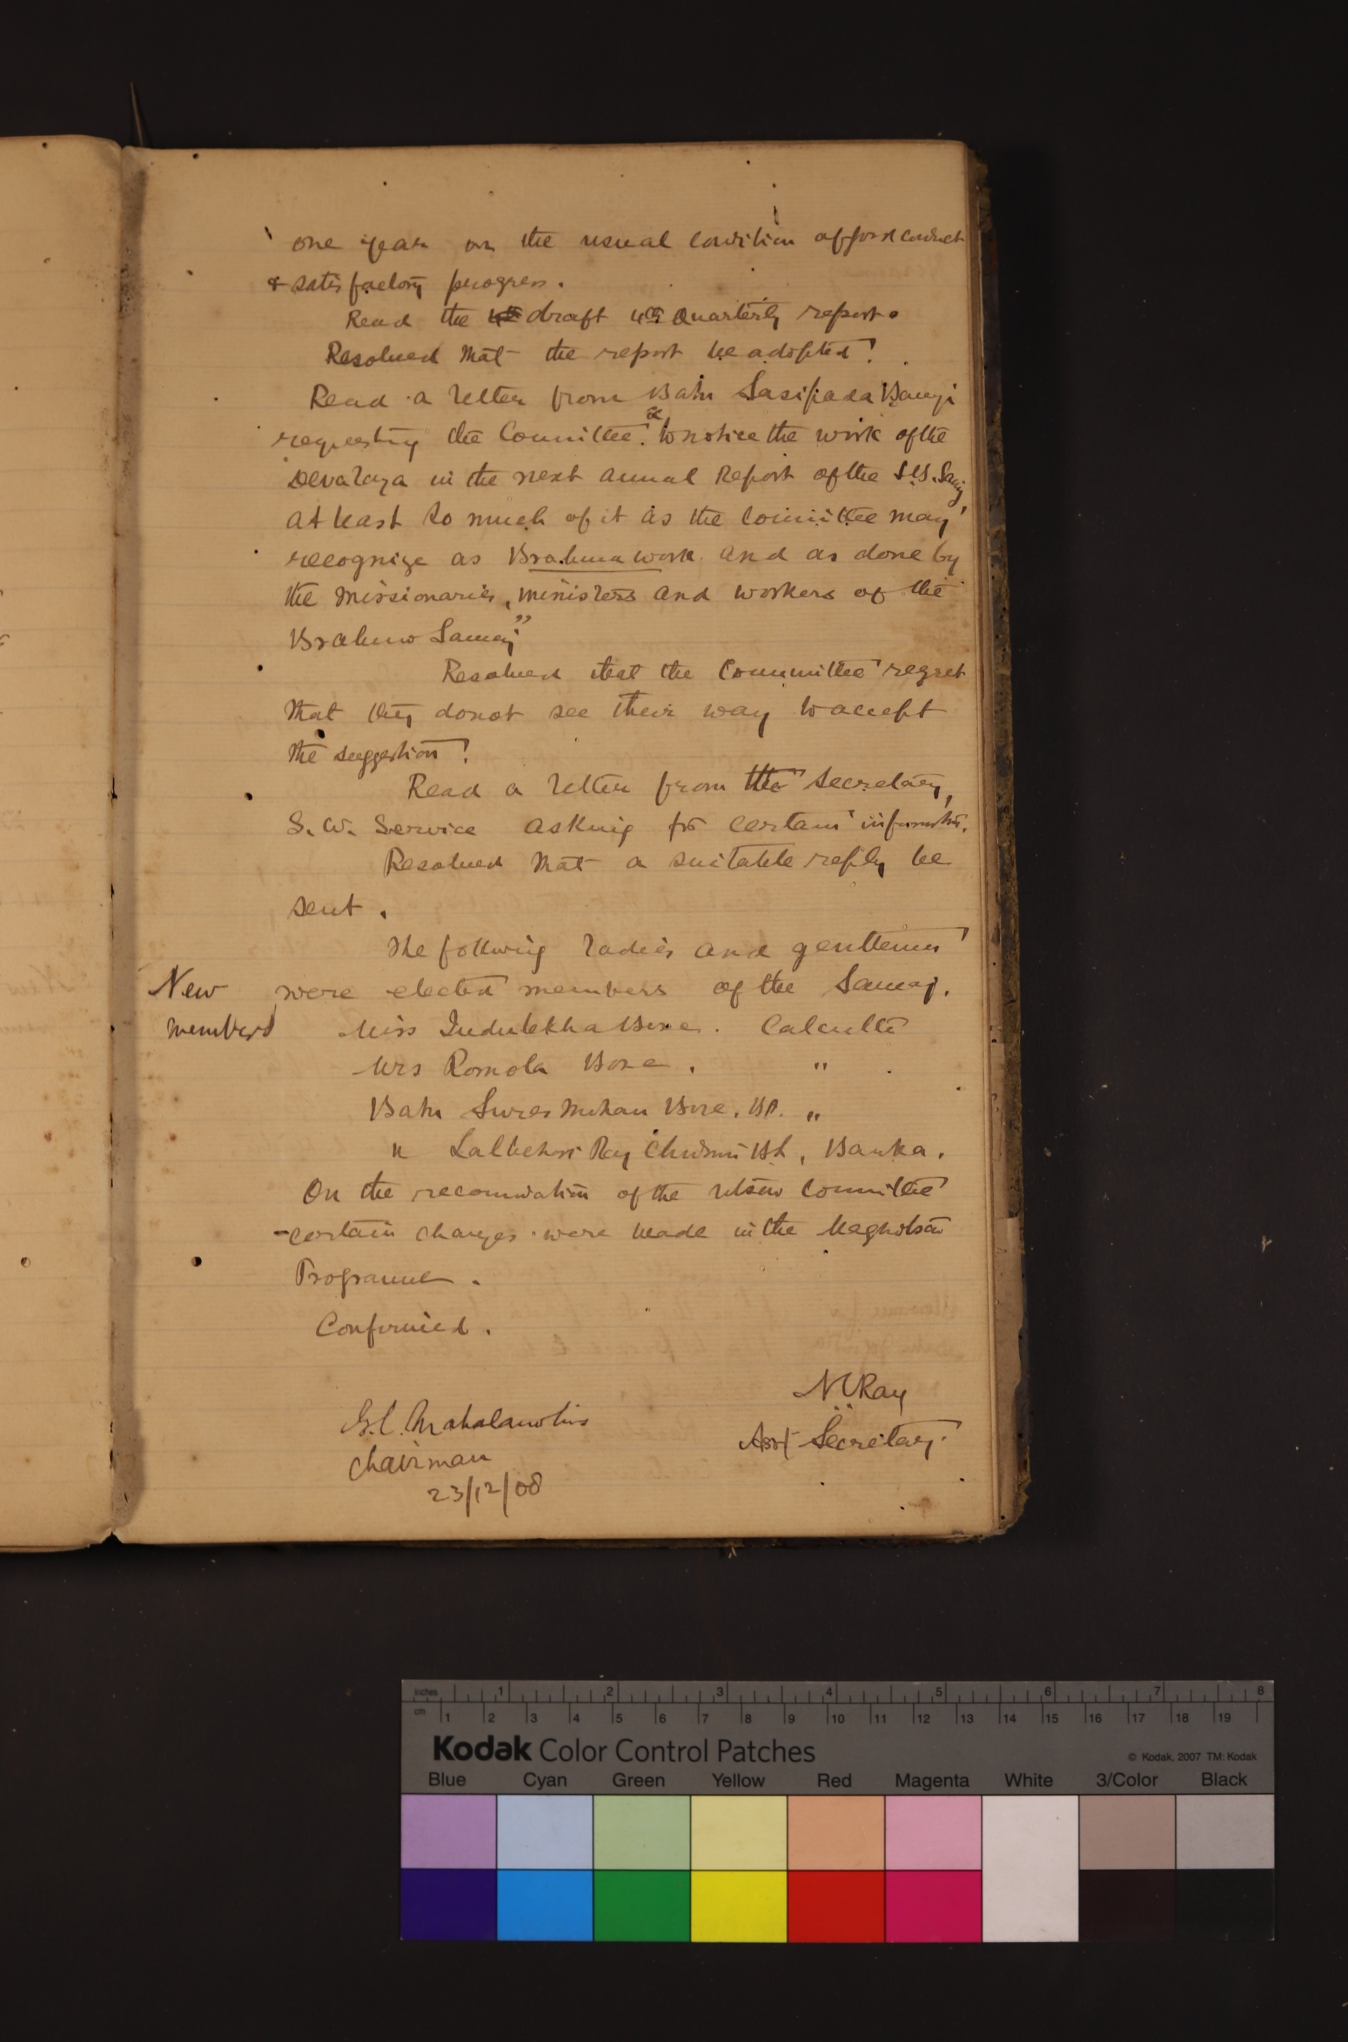 one year on the usual condition of good conduct
& satisfactory progress.
Read the draft 4th Quarterly report.
Resolved that the report be adopted.
Read a letter from Babu Sasipada Banerji
requesting the Committee "to notice the work of the
Devalaya in the next annual Report of the S.B. Samaj,
at least so much of it as the Committee may
recognize as Brahma work and as done by
the missionaries, ministers and workers of the
Brahmo Samaj"
Resolved that the Committee regret
that they do not see their way to accept
the suggestion.
Read a letter from the Secretary,
S. W. Service asking for certain information.
Resolved that a suitable reply be
sent.
The following ladies and gentlemen
New were elected members of the Samaj.
members Miss Indulekha Bose. Calcutta
Mrs Romola Bose. "
Babu Sures Mohan Bose, "
" Lalbehari Ray Chowdhuri BL, Banka.
On the recommendation of the Utsav Committee
certain changes were made in the Maghotsav
Programme.
Confirmed.
N C Ray
Asst Secretary.
G.C. Mahalanobis
Chairman
23/12/08
inches 1 2 3 4 5 6 7 8
cm 1 2 3 4 5 6 7 8 9 10 11 12 13 14 15 16 17 18 19
Kodak Color Control Patches © Kodak, 2007 TM: Kodak
Blue Cyan Green Yellow Red Magenta White 3/Color Black